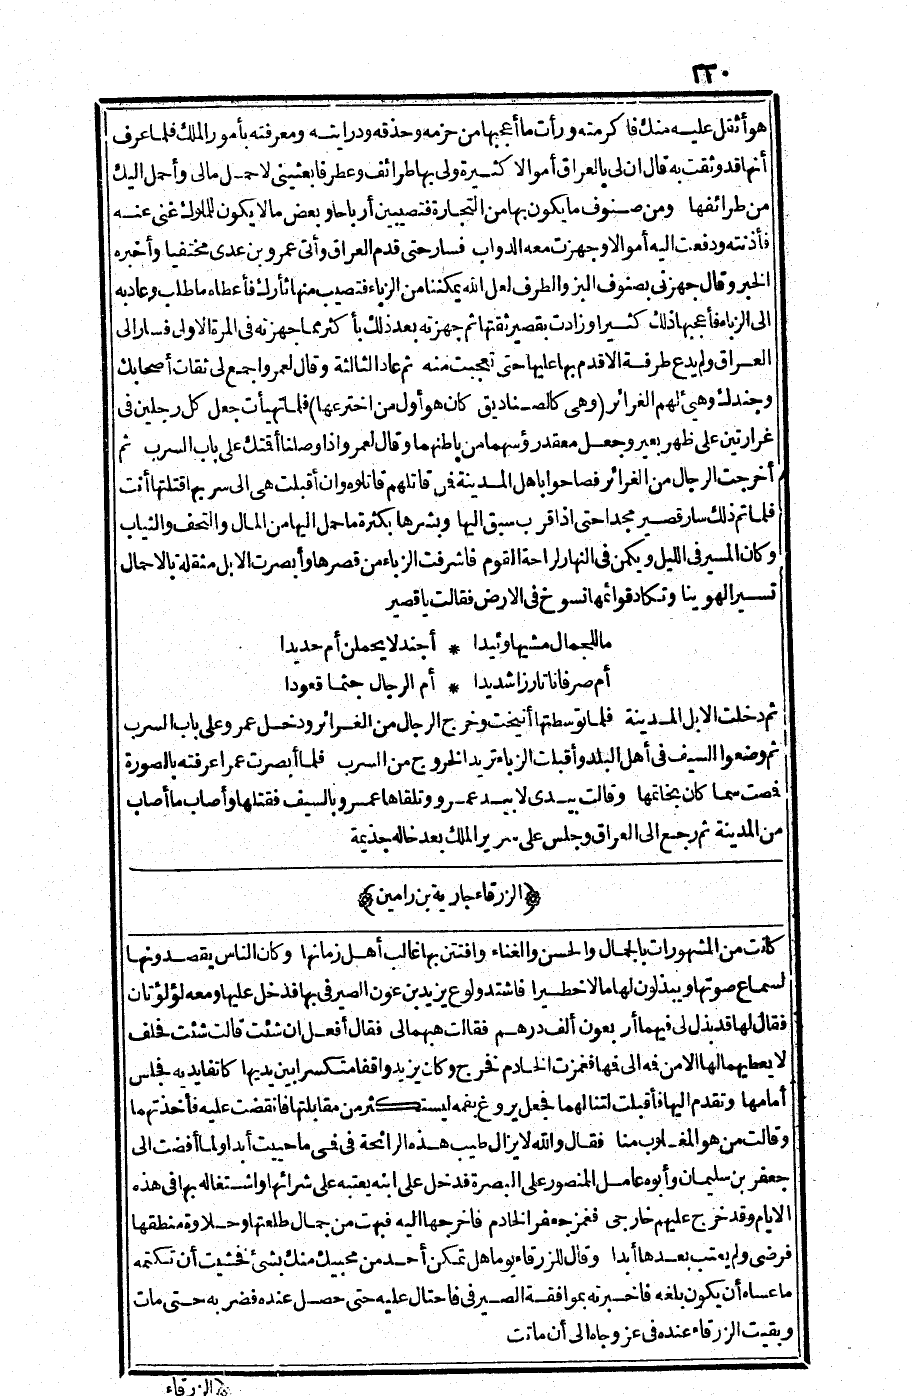 ٢٢٠
هو أثقل عليه منك فأكرمته ورأت ما أعجبها من حزمه وحذقه ودرايته ومعرفته بأمور الملك فلما عرف
أنها قد وثقت به قال ان لى بالعراق أموالا كثيرة ولى بها طرائف وعطر فابعثينى لاحمل مالى وأحمل اليك
من طرائفها ومن صنوف ما يكون بها من التجارة فتصيبين أرباحا وبعض ما لا يكون للملوك غنى عنه
فأذنته ودفعت اليه أموالا وجهزت معه الدواب فسار حتى قدم العراق وأتى عمرو بن عدى مختفيا وأخبره
الخبر وقال جهزنى بصنوف البز والطرف لعل الله يمكننا من الزباء فتصيب منها ثأرك فأعطاه ما طلب وعاد به
الى الزباء فأعجبها ذلك كثيرا وزادت بقصير ثقتها ثم جهزته بعد ذلك بأكثر مما جهزته فى المرة الاولى فسار الى
العراق ولم يدع طرفة الا قدم بها عليها حتى تعجبت منه ثم عاد الثالثة وقال لعمرو اجمع لى ثقات أصحابك
وجندك وهيئ لهم الغرائر (وهى كالصناديق كان هو أول من اخترعها) فلما تهيأت جعل كل رجلين فى
غرارتين على ظهر بعير وجعل معقد رؤسهما من باطنهما وقال لعمرو اذا وصلنا أقتك على باب السرب ثم
أخرجت الرجال من الغرائر فصاحوا باهل المدينة فمن قاتلهم قاتلوه وان أقبلت هى الى سربها قتلتها أنت
فلما تم ذلك سار قصير مجدا حتى اذا قرب سبق اليها وبشرها بكثرة ما حمل اليها من المال والتحف والثياب
وكان المسير فى الليل ويكمن فى النهار لراحة القوم فأشرفت الزباء من قصرها وأبصرت الابل مثقلة بالاحمال
تسير الهوينا وتكاد قوائمها تسوخ فى الارض فقالت يا قصير
ما للجمال مشيها وئيدا * أجندلا يحملن أم حديدا
أم صرفانا تارزا شديدا * أم الرجال جثما قعودا
ثم دخلت الابل المدينة فلما توسطتها أنيخت وخرج الرجال من الغرائر ودخل عمرو على باب السرب
ثم وضعوا السيف فى أهل البلد وأقبلت الزباء تريد الخروج من السرب فلما أبصرت عمرا عرفته بالصورة
فمصت سما كان بخاتمها وقالت بيدى لا بيد عمرو وتلقاها عمرو بالسيف فقتلها وأصاب ما أصاب
من المدينة ثم رجع الى العراق وجلس على سرير الملك بعد خاله جذيمة
﴿الزرقاء جارية بن رامين﴾
كانت من المشهورات بالجمال والحسن والغناء وافتتن بها غالب أهل زمانها وكان الناس يقصدونها
لسماع صوتها ويبذلون لها مالا خطيرا فاشتد ولوع يزيد بن عون الصيرفى بها فدخل عليها ومعه لؤلؤتان
فقال لها قد بذل لى فيهما أربعون ألف درهم فقالت هبهما لى فقال أفعل ان شئت قالت شئت فحلف
لا يعطيهما لها الا من فيه الى فيها فغمزت الخادم فخرج وكان يزيد واقفا متكسرا بين يديها كانفا يديه فجلس
أمامها وتقدم اليها فأقبلت لتنالهما فجعل يروغ بفمه ليستكثر من مقابلتها فانقضت عليه فأخذتهما
وقالت من هو المغلوب منا فقال والله لا يزال طيب هذه الرائحة فى فمى ما حييت أبدا ولما أفضت الى
جعفر بن سليمان وأبوه عامل المنصور على البصرة فدخل على ابنه يعتبه على شرائها واشتغاله بها فى هذه
الايام وقد خرج عليهم خارجى فغمز جعفر الخادم فأخرجها اليه فبهت من جمال طلعتها وحلاوة منطقها
فرضى ولم يعتب بعدها أبدا وقال للزرقاء يوما هل تمكن أحد من محبيك منك بشئ فخشيت أن تكتمه
ما عساه أن يكون بلغه فأخبرته بموافقة الصيرفى فاحتال عليه حتى حصل عنده فضربه حتى مات
وبقيت الزرقاء عنده فى عز وجاه الى أن ماتت
﴿الزرقاء